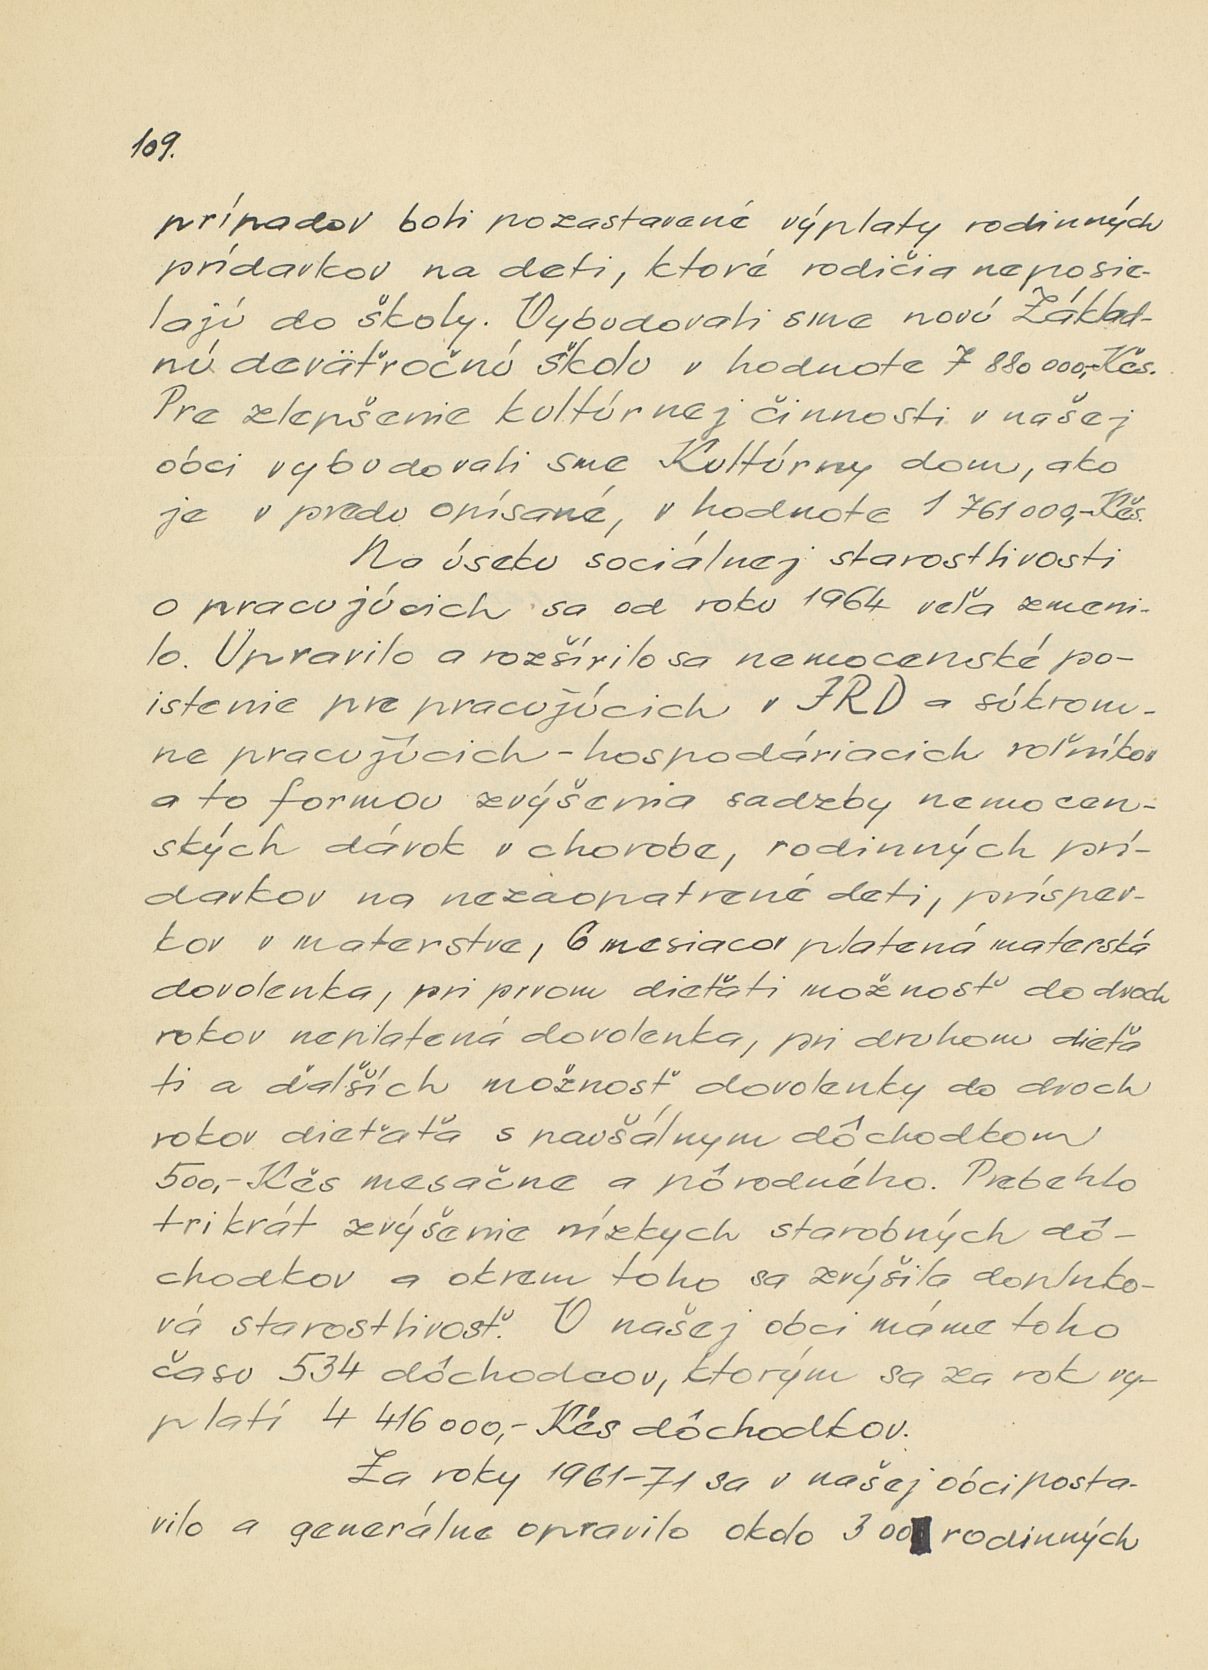 109.
prípadov boli pozastavené výplaty rodinných
prídavkov na deti, ktoré rodičia neposie-
lajú do školy. Vybudovali sme novú Základ-
nú deväťročnú školu v hodnote 7 880 000,-Kčs.
Pre zlepšenie kultúrnej činnosti v našej
obci vybudovali sme Kultúrny dom, ako
je v predu opísané, v hodnote 1 761 000,-Kčs.
Na úseku sociálnej starostlivosti
o pracujúcich sa od roku 1964 veľa zmeni-
lo. Upravilo a rozšírilo sa nemocenské po-
istenie pre pracujúcich v JRD a súkrom-
ne pracujúcich-hospodáriacich roľníkov
a to formou zvýšenia sadzby nemocen-
ských dávok v chorobe, rodinných prí-
davkov na nezaopatrené deti, príspev-
kov v materstve, 6 mesiacov platená materská
dovolenka, pri prvom dieťati možnosť do dvoch
rokov neplatená dovolenka, pri druhom dieťa
ti a ďalších možnosť dovolenky do dvoch
rokov dieťaťa s paušálnym dôchodkom
500,-Kčs mesačne a pôrodného. Prebehlo
trikrát zvýšenie nízkych starobných dô-
chodkov a okrem toho sa zvýšila doplnko-
vá starostlivosť. V našej obci máme toho
času 534 dôchodcov, ktorým sa za rok vy-
platí 4 416 000,- Kčs dôchodkov.
Za roky 1961-71 sa v našej obci posta-
vilo a generálne opravilo okolo 300 rodinných